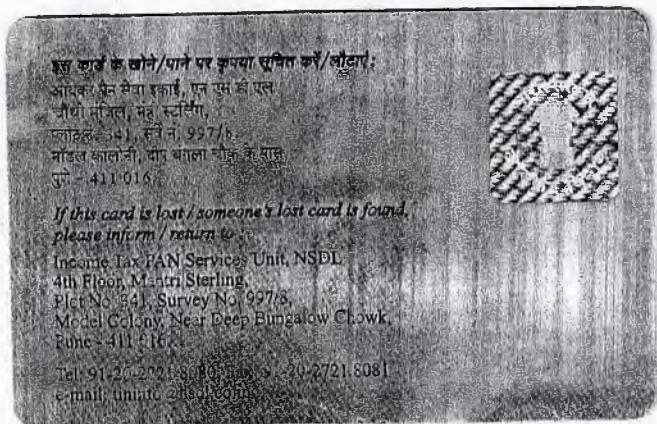 इस कार्ड के खोने/पाने पर कृपया सूचित करें/लौटाएं:
आयकर पैन सेवा इकाई, एन एस डी एल
स्टर्लिंग,
341, सर्वे नं. 997/8,
मॉडल कालोनी, दीप बंगला चौक के पास
पुणे - 411 016.
If this card is lost / someone's lost card is found,
please inform / return to :
Income Tax PAN Services Unit, NSDL
4th Floor, Mantri Sterling,
Plot No. 341, Survey No. 997/8,
Model Colony, Near Deep Bungalow Chowk,
Pune - 411 016.
Tel: 91-20-2721 8080, 91-20-2721 8081
e-mail: